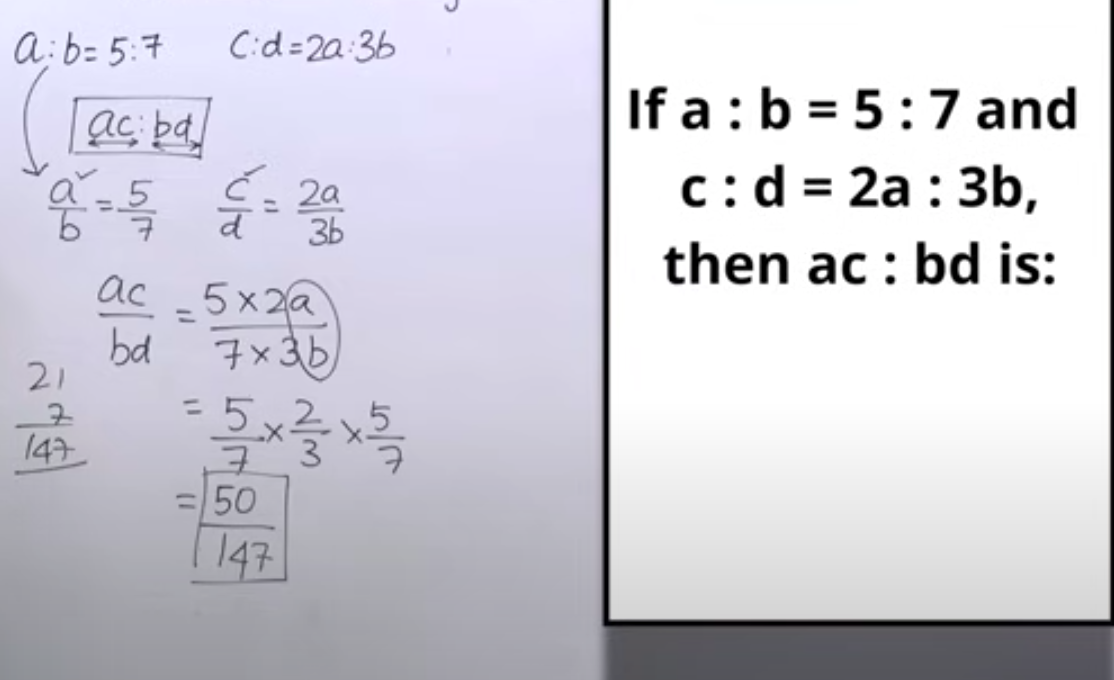 a:b=5:7 C:d=2a:3b
ac:bd
a/b = 5/7 c/d = 2a/3b
ac/bd = 5×2a/7×3b
21
7
147
= 5/7 × 2/3 × 5/7
= 50/147
If a : b = 5 : 7 and
c : d = 2a : 3b,
then ac : bd is: